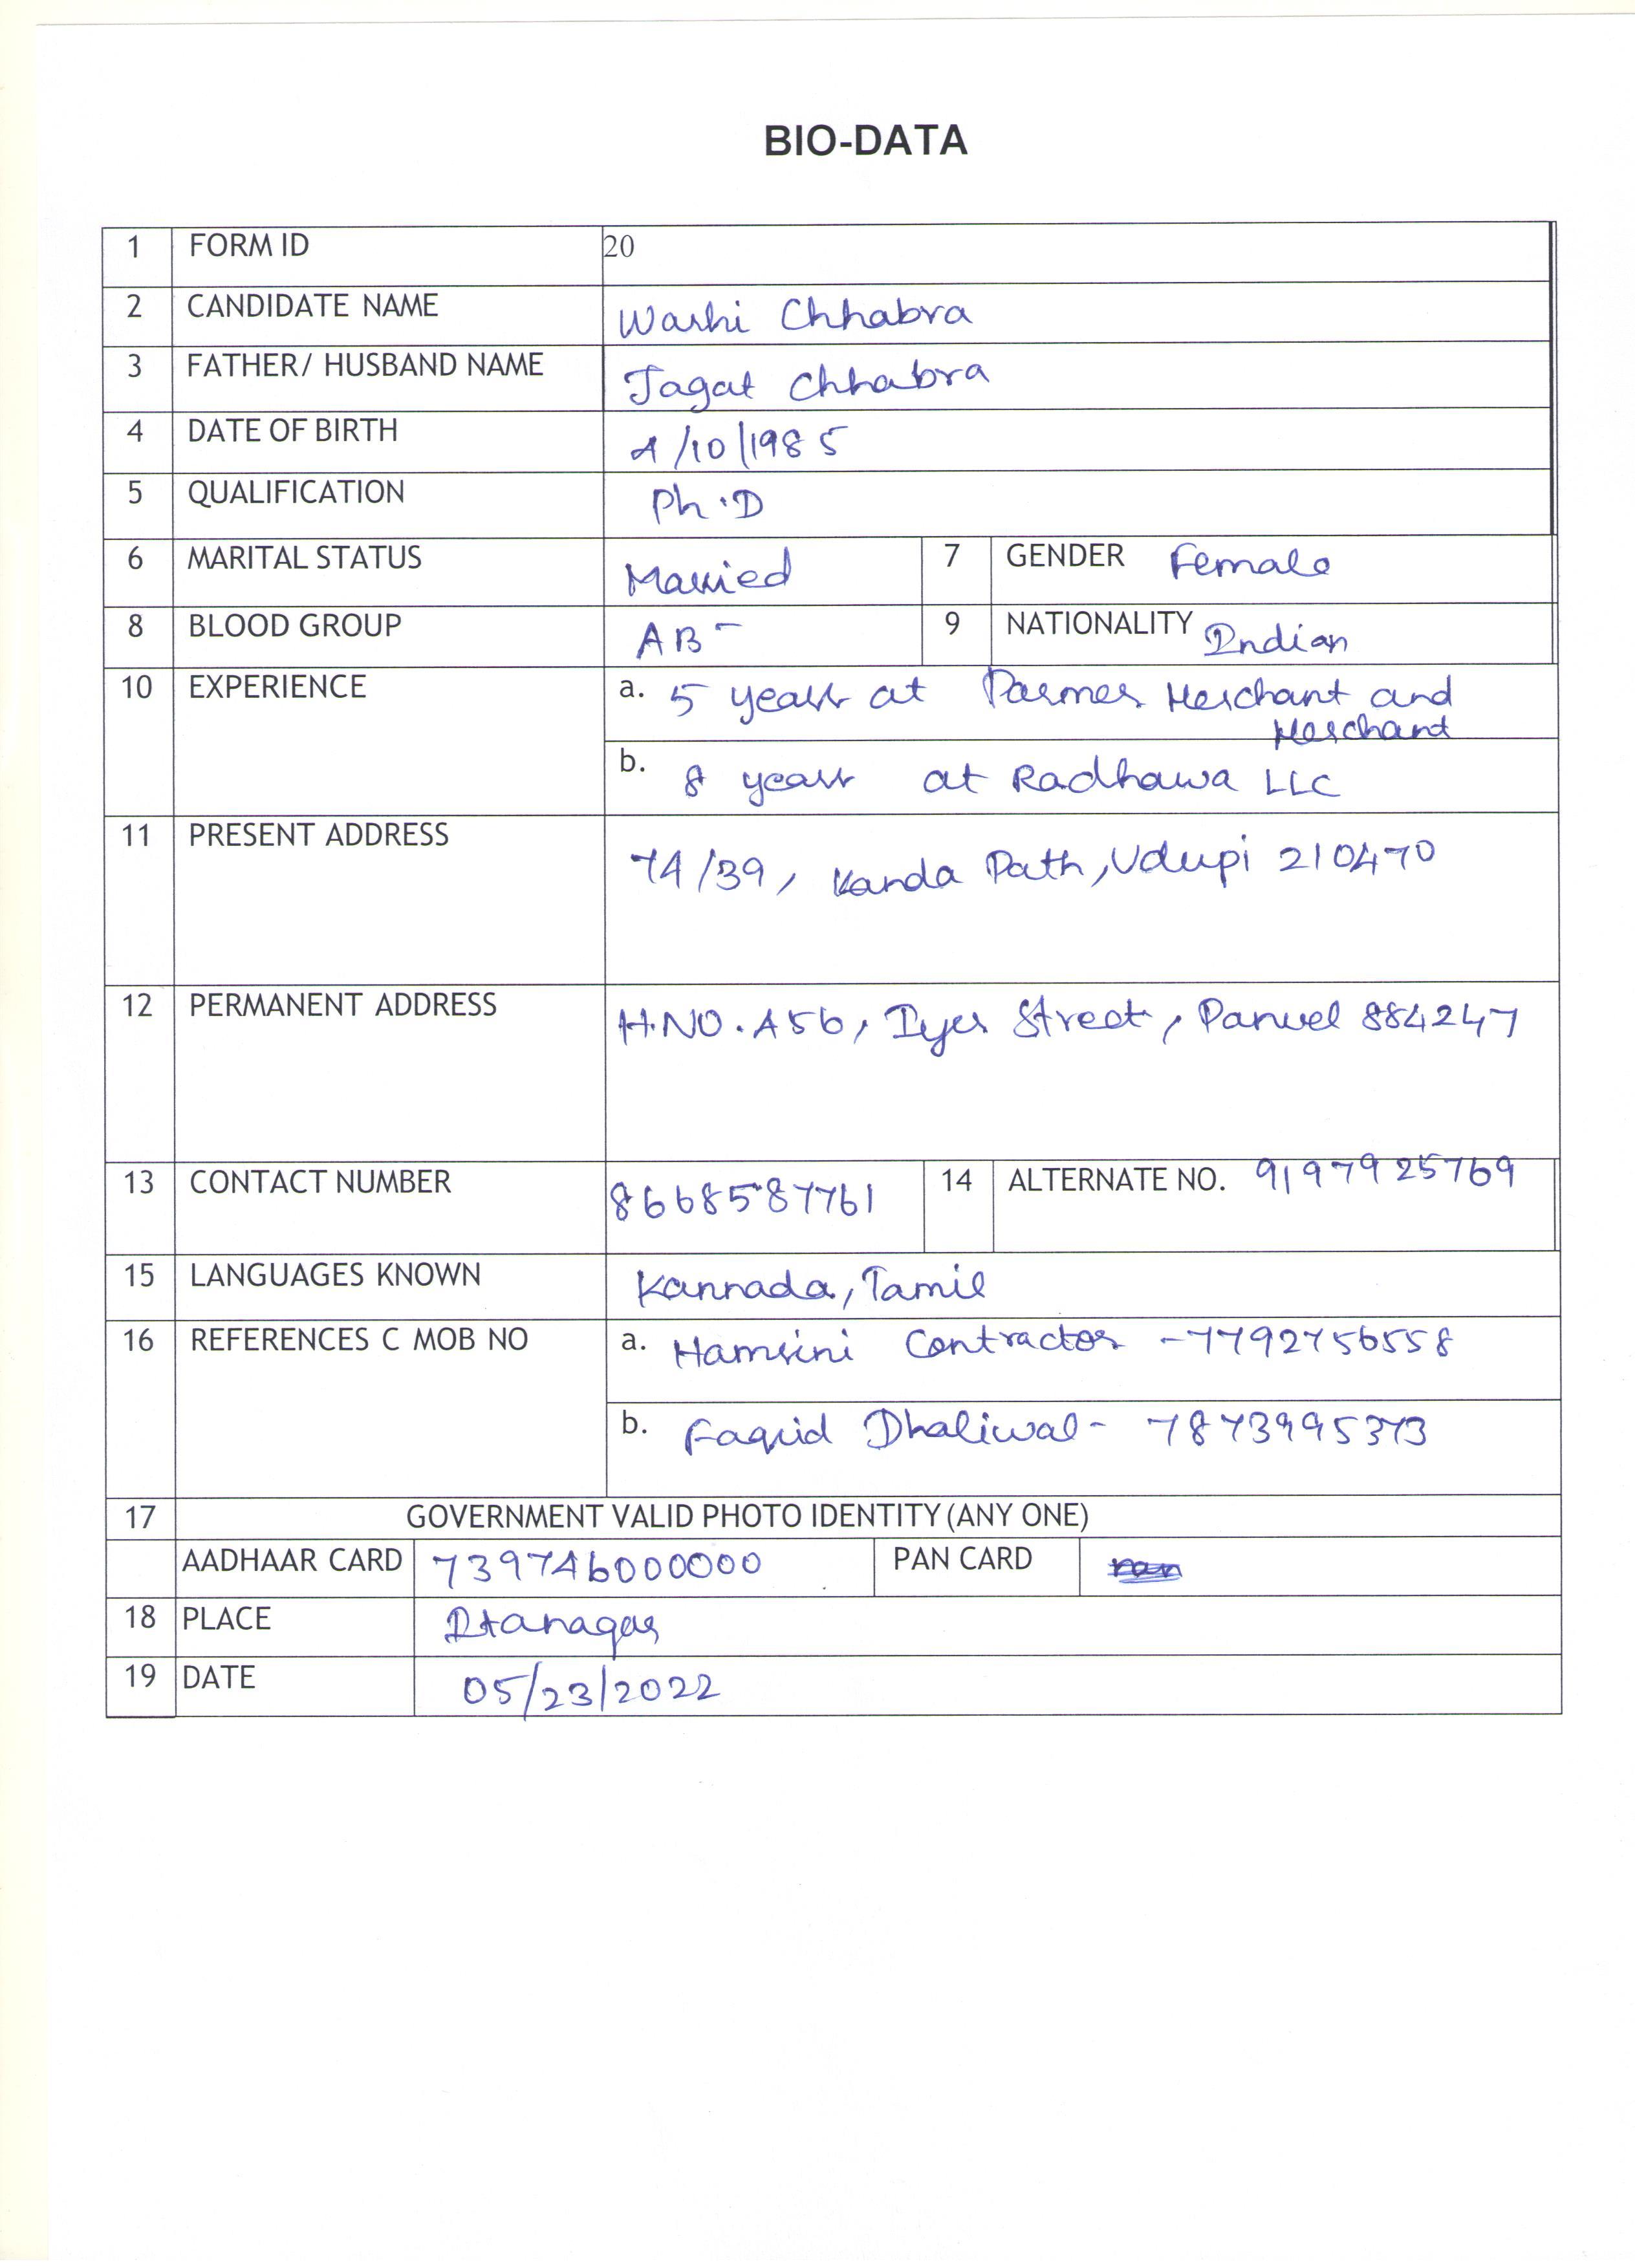 BIO-DATA
1 FORM ID 20
2 CANDIDATE NAME Warhi Chhabra
3 FATHER/ HUSBAND NAME Jagat Chhabra
4 DATE OF BIRTH 4/10/1985
5 QUALIFICATION Ph.D
6 MARITAL STATUS Married 7 GENDER Female
8 BLOOD GROUP AB- 9 NATIONALITY Indian
10 EXPERIENCE a. 5 years at Parmer Merchant and
Merchant
b. 8 years at Radhawa LLC
11 PRESENT ADDRESS 74/39, Kanda Path, Udupi 210470
12 PERMANENT ADDRESS H.NO. A56, Iyer Street, Panvel 884247
13 CONTACT NUMBER 8668587761 14 ALTERNATE NO. 9197925769
15 LANGUAGES KNOWN Kannada, Tamil
16 REFERENCES C MOB NO a. Hamsini Contractor - 7792756558
b. Faqid Dhaliwal - 7873995373
17 GOVERNMENT VALID PHOTO IDENTITY (ANY ONE)
AADHAAR CARD 739746000000 PAN CARD
18 PLACE Itanagar
19 DATE 05/23/2022